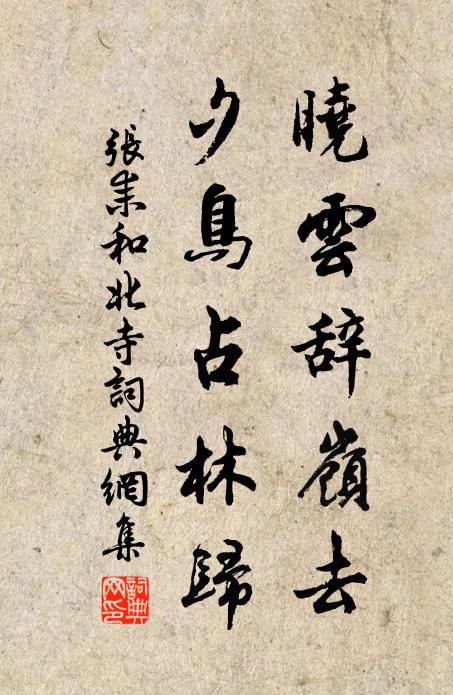 曉雲辞嶺去
夕鳥占林歸
張耒和北寺詞典網集
詞典
网印